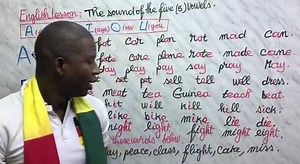 English lesson: The sound of the five (5) Vowels.
A E I O U
fat Car plan rat maid can.
fate care plane rate made came
Day play pay say pray May.
set pet sell tell well dress.
meat tea Guinea teach beat.
kit will kill kill sick.
like bike mike lie die.
night light fight might eight.
these words below
day, peace, class, flight, cake, miss.